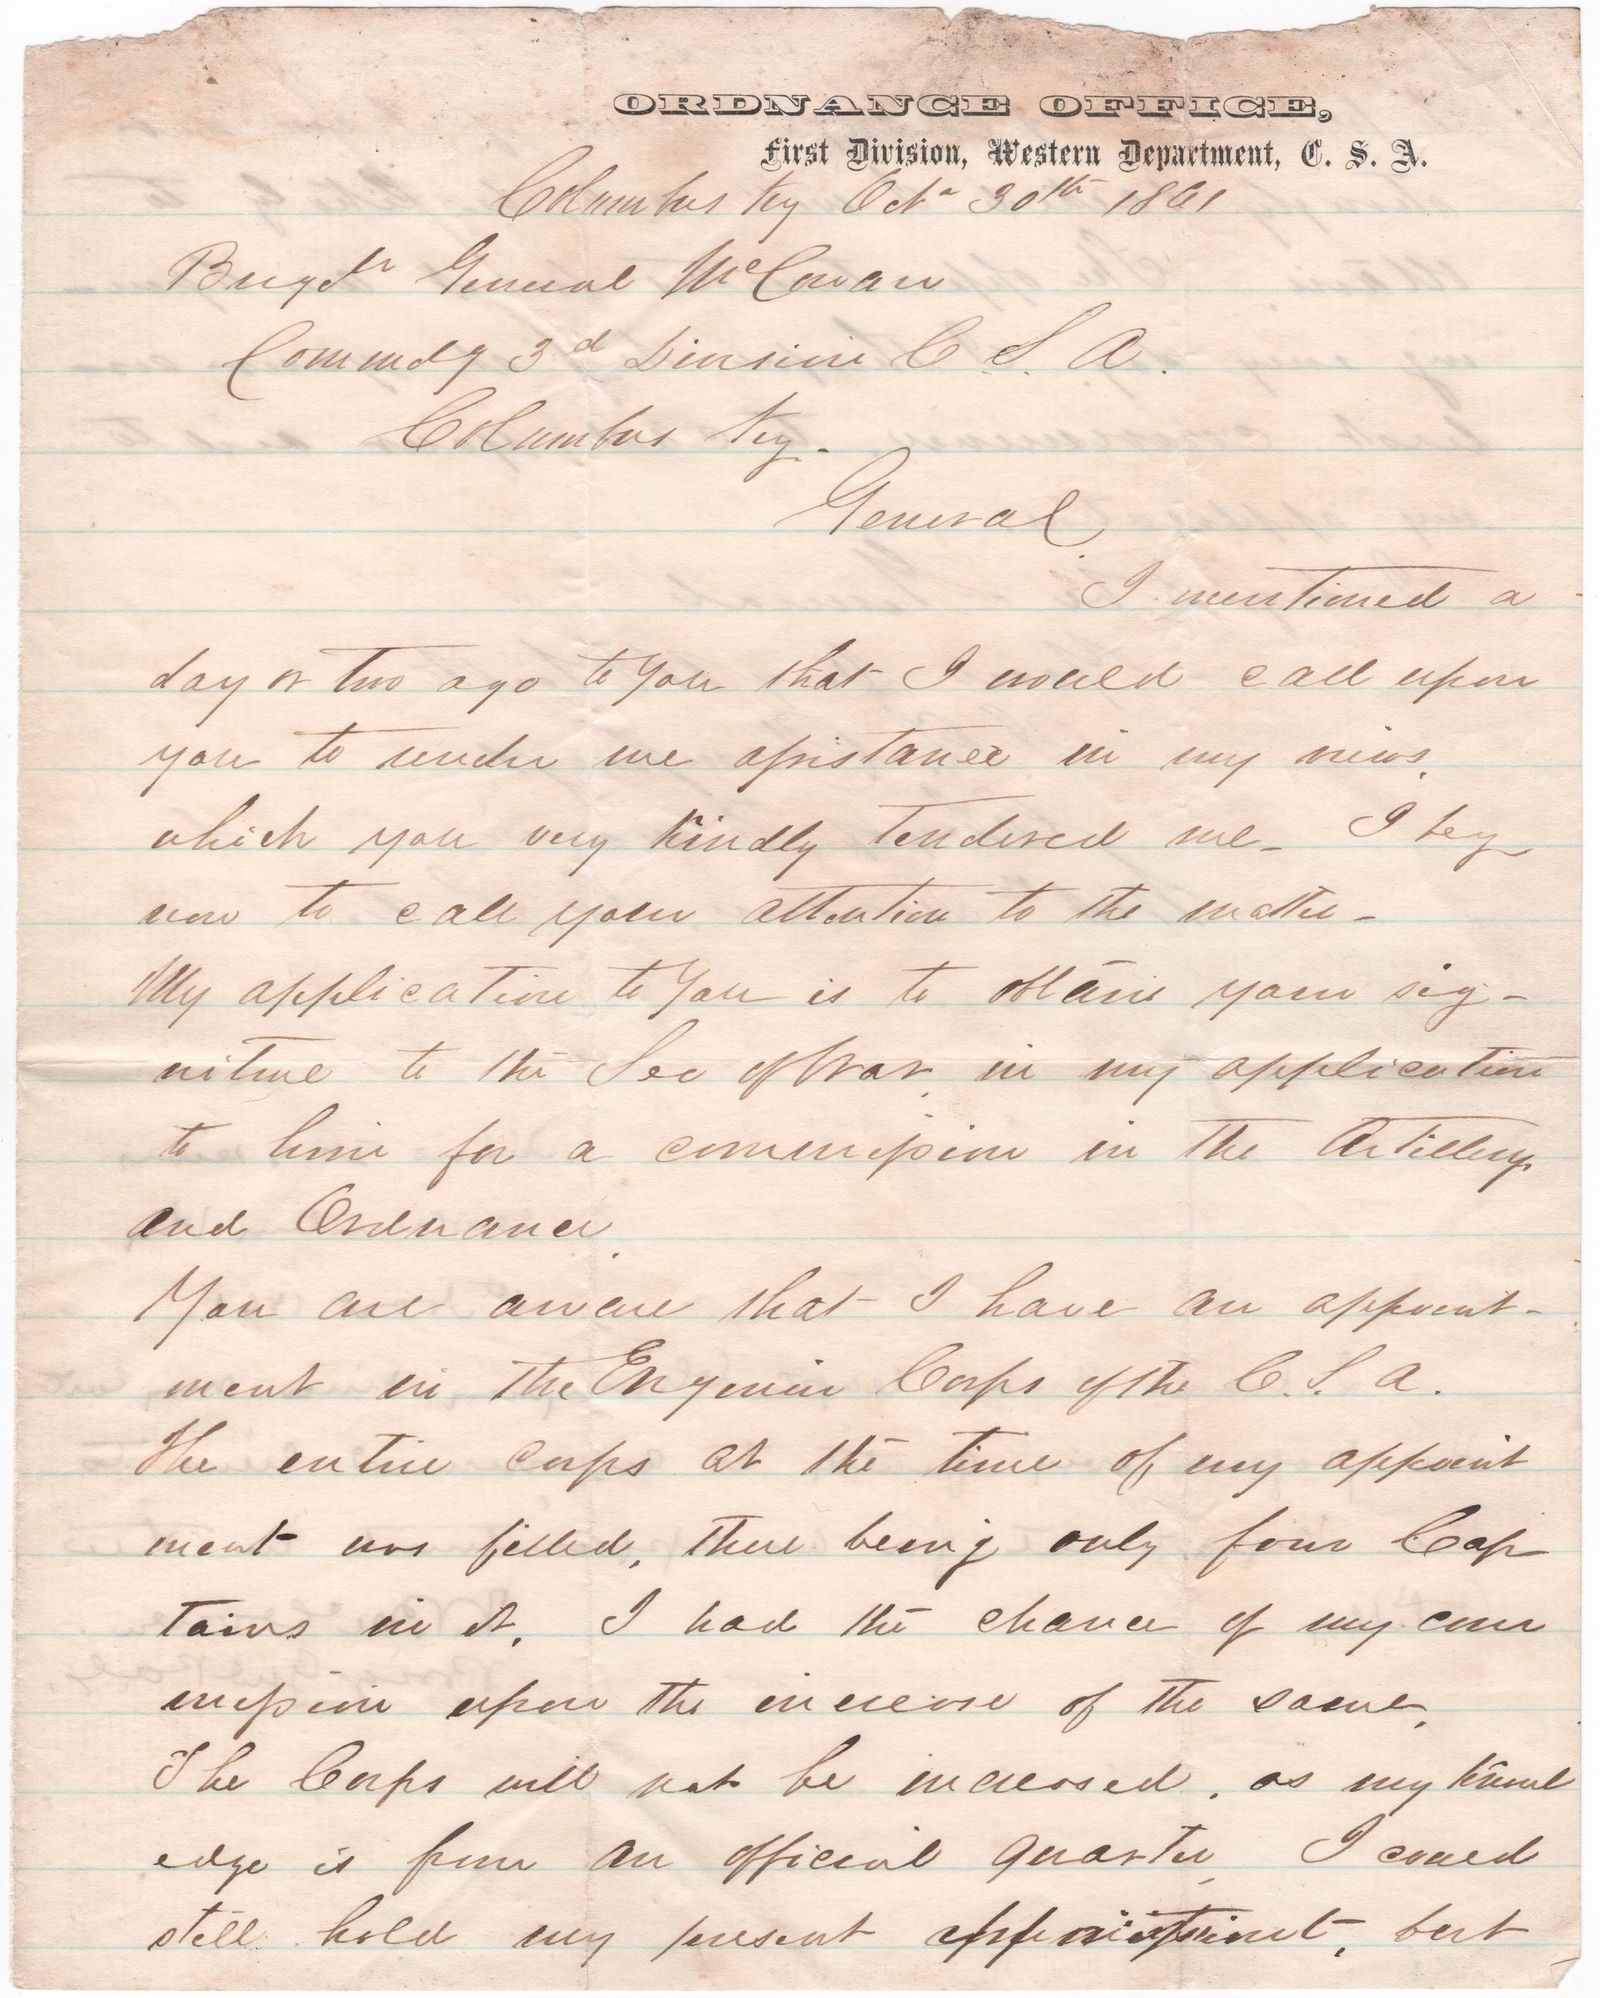 ORDNANCE OFFICE,
First Division, Western Department, C. S. A.
Columbus Ky Oct 30th 1861
Brigdr General McCown
Commdg 3d Division C. S. A.
Columbus Ky.
General
I mentioned a
day or two ago to you that I would call upon
you to render me assistance in my views,
which you very kindly tendered me - I beg
now to call your attention to the matter -
My application to you is to obtain your sig-
niture to the Sec of War, in my application
to him for a commission in the Artillery
and Ordnance.
You are aware that I have an appoint-
ment in the Engenier Corps of the C. S. A.
The entire corps at the time of my appoint
ment was filled, there being only four Cap
tains in it, I had the chance of my com
mission upon the increase of the same,
The Corps will not be increased, as my knowl
edge is from an official quarter, I could
still hold my present appointment, but